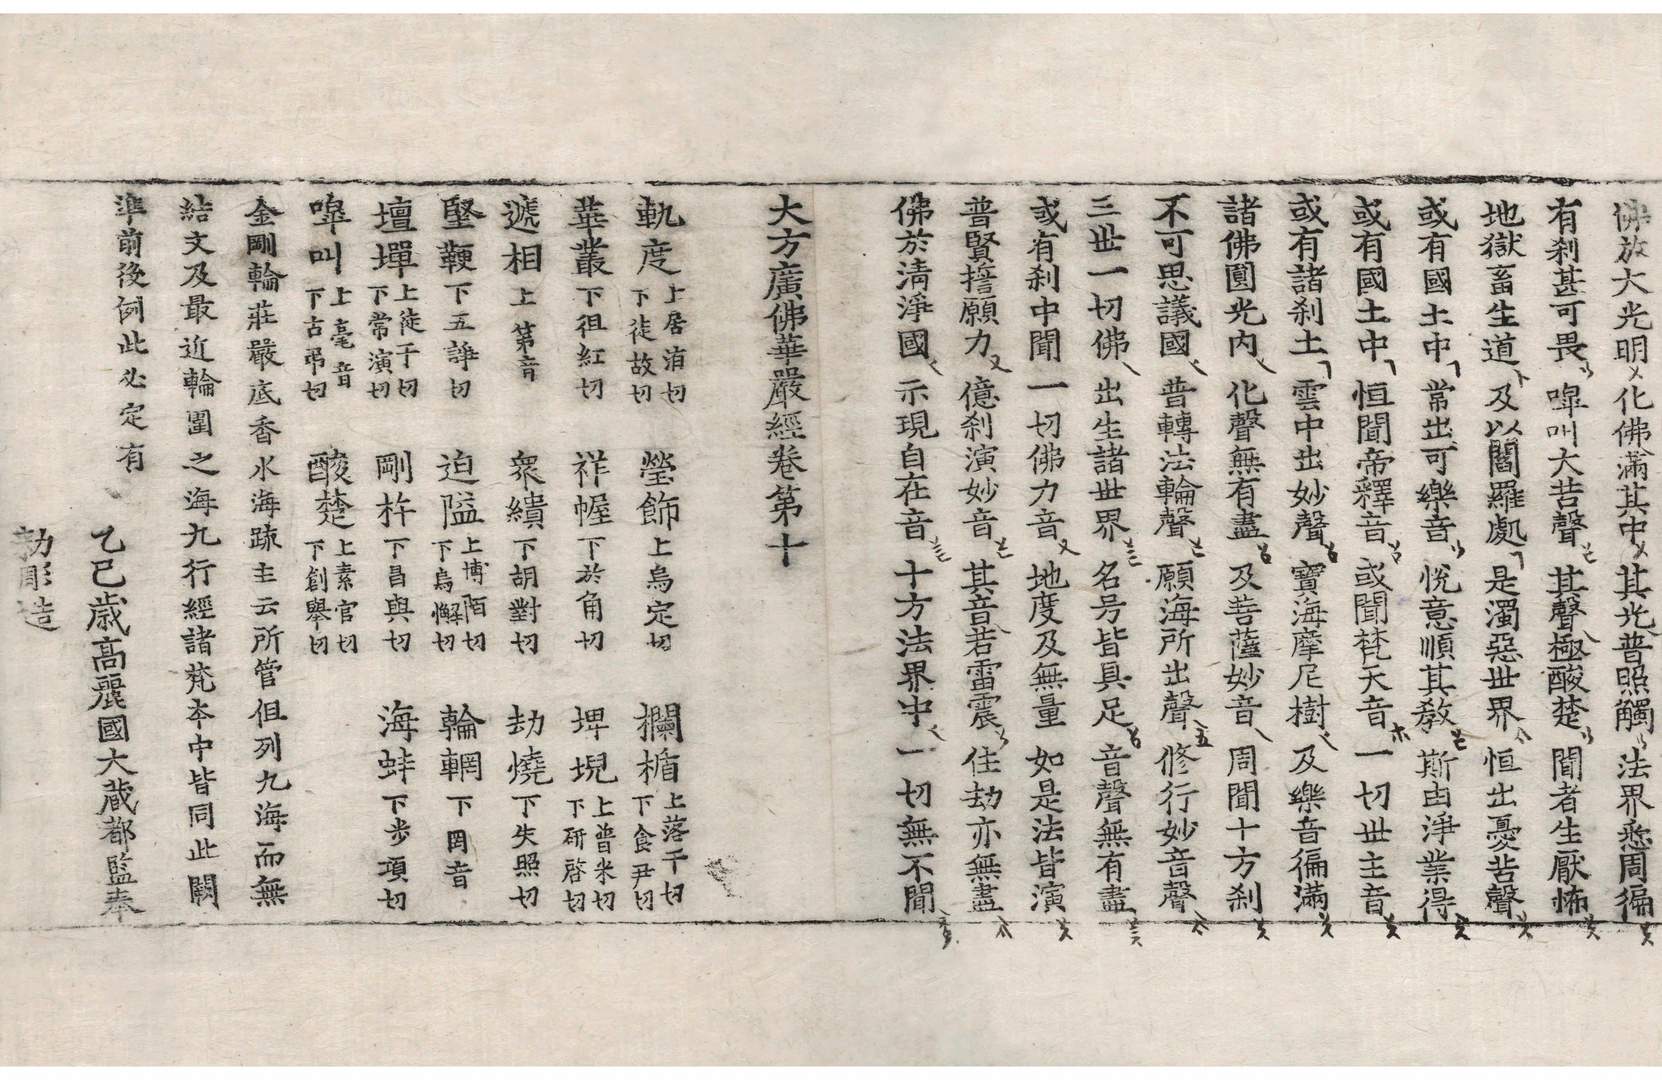 佛放大光明 化佛滿其中 其光普照觸 法界悉周徧
有刹甚可畏 嘷叫大苦聲 其聲極酸楚 聞者生厭怖
地獄畜生道 及以閻羅處 是濁惡世界 恒出憂苦聲
或有國土中 常出可樂音 悅意順其教 斯由淨業得
或有國土中 恒聞帝釋音 或聞梵天音 一切世主音
或有諸刹土 雲中出妙聲 寶海摩尼樹 及樂音徧滿
諸佛圓光內 化聲無有盡 及菩薩妙音 周聞十方刹
不可思議國 普轉法輪聲 願海所出聲 修行妙音聲
三世一切佛 出生諸世界 名号皆具足 音聲無有盡
或有刹中聞 一切佛力音 地度及無量 如是法皆演
普賢誓願力 億刹演妙音 其音若雷震 住劫亦無盡
佛於清淨國 示現自在音 十方法界中 一切無不聞
大方廣佛華嚴經卷第十
軌度 上居洧切 下徒故切 瑩飾 上烏定切 欄楯 上落干切 下食尹切
華叢 下徂紅切 祥幄 下於角切 埤堄 上普米切 下研啓切
遞相 上第音 衆繢 下胡對切 劫燒 下失照切
堅鞕 下五諍切 迫隘 上博陌切 下烏懈切 輪輞 下罔音
壇墠 上徒干切 下常演切 剛杵 下昌與切 海蚌 下步項切
嘷叫 上毫音 下古弔切 酸楚 上素官切 下創舉切
金剛輪莊嚴底香水海䟽主云所管但列九海而無
結文及最近輪圍之海九行經諸梵夲中皆同此闕
準前後例此必定有
乙巳歲高麗國大藏都監奉
勑彫造